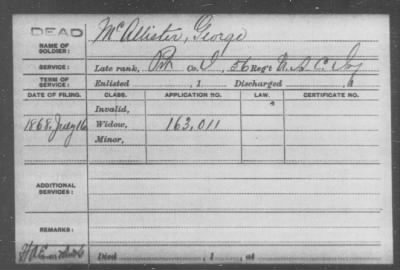 DEAD
McAllister, George
NAME OF SOLDIER:
SERVICE: Late rank, Pvt Co. I, 56 Reg't U.S.C. Inf
TERM OF SERVICE: Enlisted , 1 Discharged , 1
DATE OF FILING. CLASS. APPLICATION NO. LAW. CERTIFICATE NO.
Invalid,
1868. July 16 Widow, 163,011
Minor,
ADDITIONAL SERVICES:
REMARKS:
Died , 1 , at